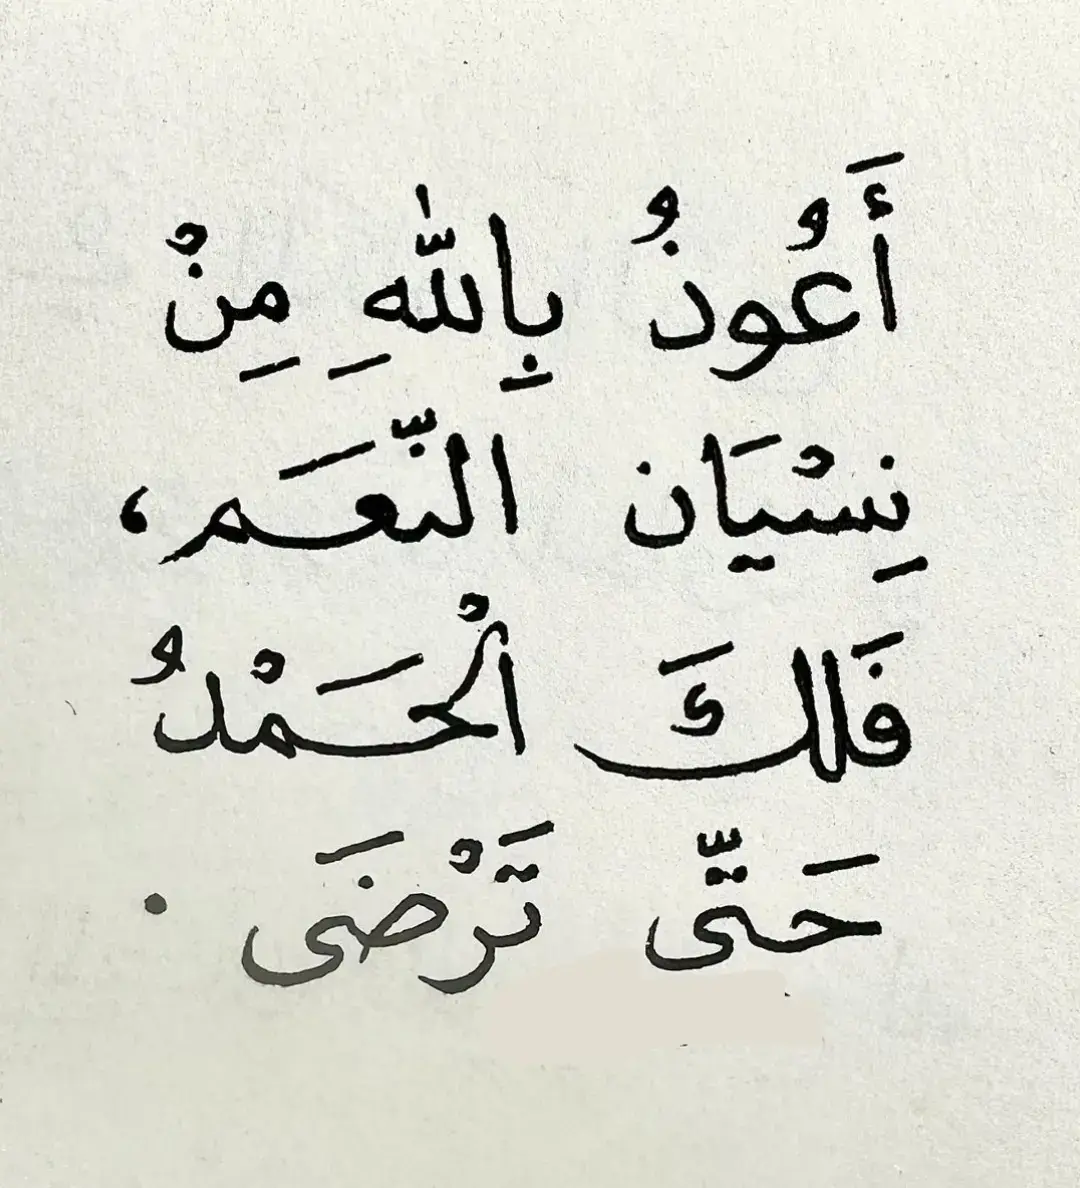 أَعُوذُ بِاللّٰهِ مِنْ
نِسْيَان النّعَم،
فَلكَ الْحَمْدُ
حَتّى تَرْضَى .